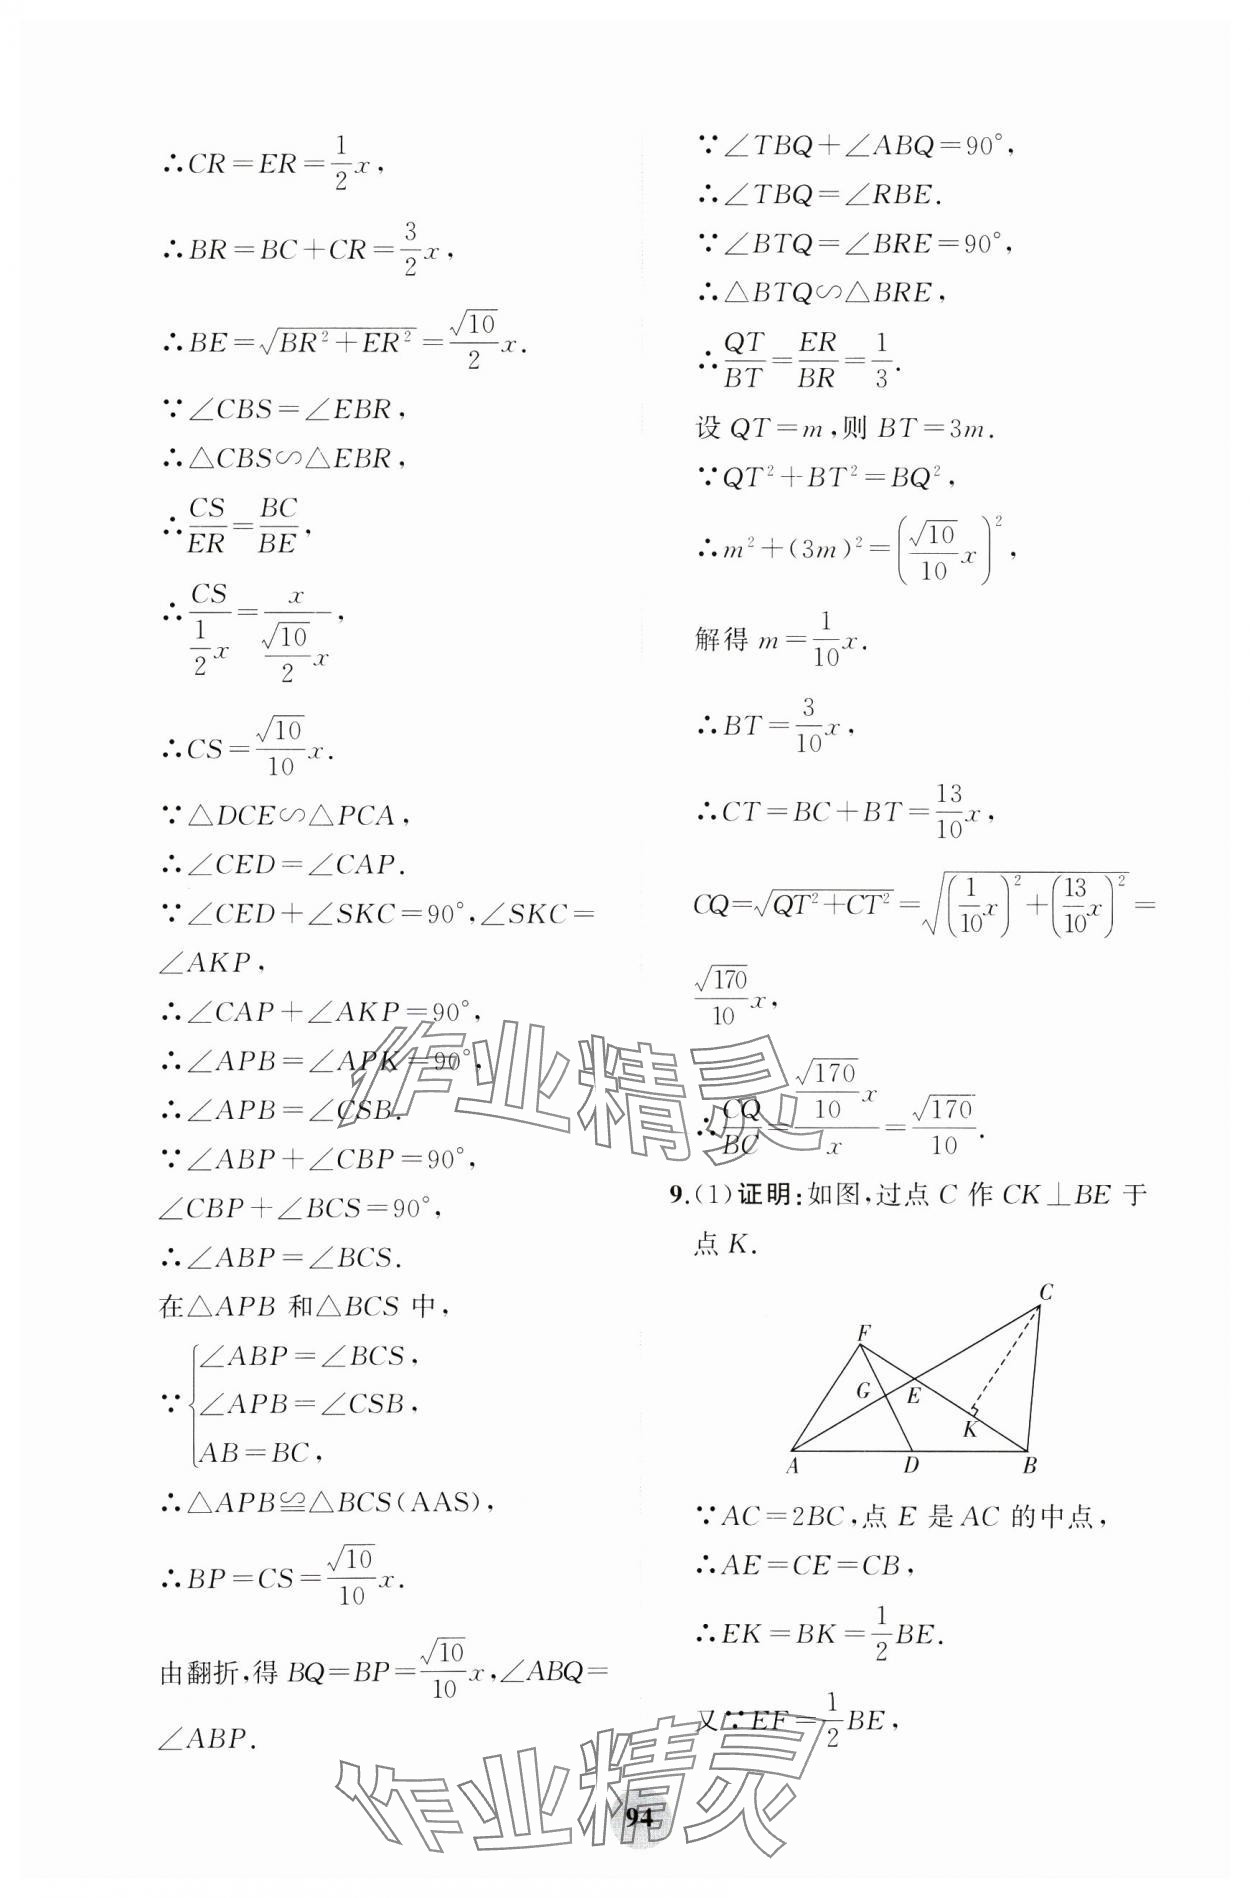 ∴CR=ER=\frac{1}{2}x,
∴BR=BC+CR=\frac{3}{2}x,
∴BE=\sqrt{BR²+ER²}=\frac{\sqrt{10}}{2}x.
∵∠CBS=∠EBR,
∴△CBS∽△EBR,
∴\frac{CS}{ER}=\frac{BC}{BE},
∴\frac{CS}{\frac{1}{2}x}=\frac{x}{\frac{\sqrt{10}}{2}x},
∴CS=\frac{\sqrt{10}}{10}x.
∵△DCE∽△PCA,
∴∠CED=∠CAP.
∵∠CED+∠SKC=90°,∠SKC=
∠AKP,
∴∠CAP+∠AKP=90°,
∴∠APB=∠APK=90°,
∴∠APB=∠CSB.
∵∠ABP+∠CBP=90°,
∠CBP+∠BCS=90°,
∴∠ABP=∠BCS.
在△APB 和△BCS 中,
∠ABP=∠BCS,
∵{∠APB=∠CSB,
AB=BC,
∴△APB≌△BCS(AAS),
∴BP=CS=\frac{\sqrt{10}}{10}x.
由翻折,得 BQ=BP=\frac{\sqrt{10}}{10}x,∠ABQ=
∠ABP.
∵∠TBQ+∠ABQ=90°,
∴∠TBQ=∠RBE.
∵∠BTQ=∠BRE=90°,
∴△BTQ∽△BRE,
∴\frac{QT}{BT}=\frac{ER}{BR}=\frac{1}{3}.
设 QT=m,则 BT=3m.
∵QT²+BT²=BQ²,
∴m²+(3m)²=(\frac{\sqrt{10}}{10}x)²,
解得 m=\frac{1}{10}x.
∴BT=\frac{3}{10}x,
∴CT=BC+BT=\frac{13}{10}x,
CQ=\sqrt{QT²+CT²}=\sqrt{(\frac{1}{10}x)²+(\frac{13}{10}x)²}=
\frac{\sqrt{170}}{10}x,
∴\frac{CQ}{BC}=\frac{\frac{\sqrt{170}}{10}x}{x}=\frac{\sqrt{170}}{10}.
9.(1)证明:如图,过点 C 作 CK⊥BE 于
点 K.
C
F
G
E
K
A
D
B
∵AC=2BC,点 E 是 AC 的中点,
∴AE=CE=CB,
∴EK=BK=\frac{1}{2}BE.
又∵EF=\frac{1}{2}BE,
94
作业精灵
作业精灵